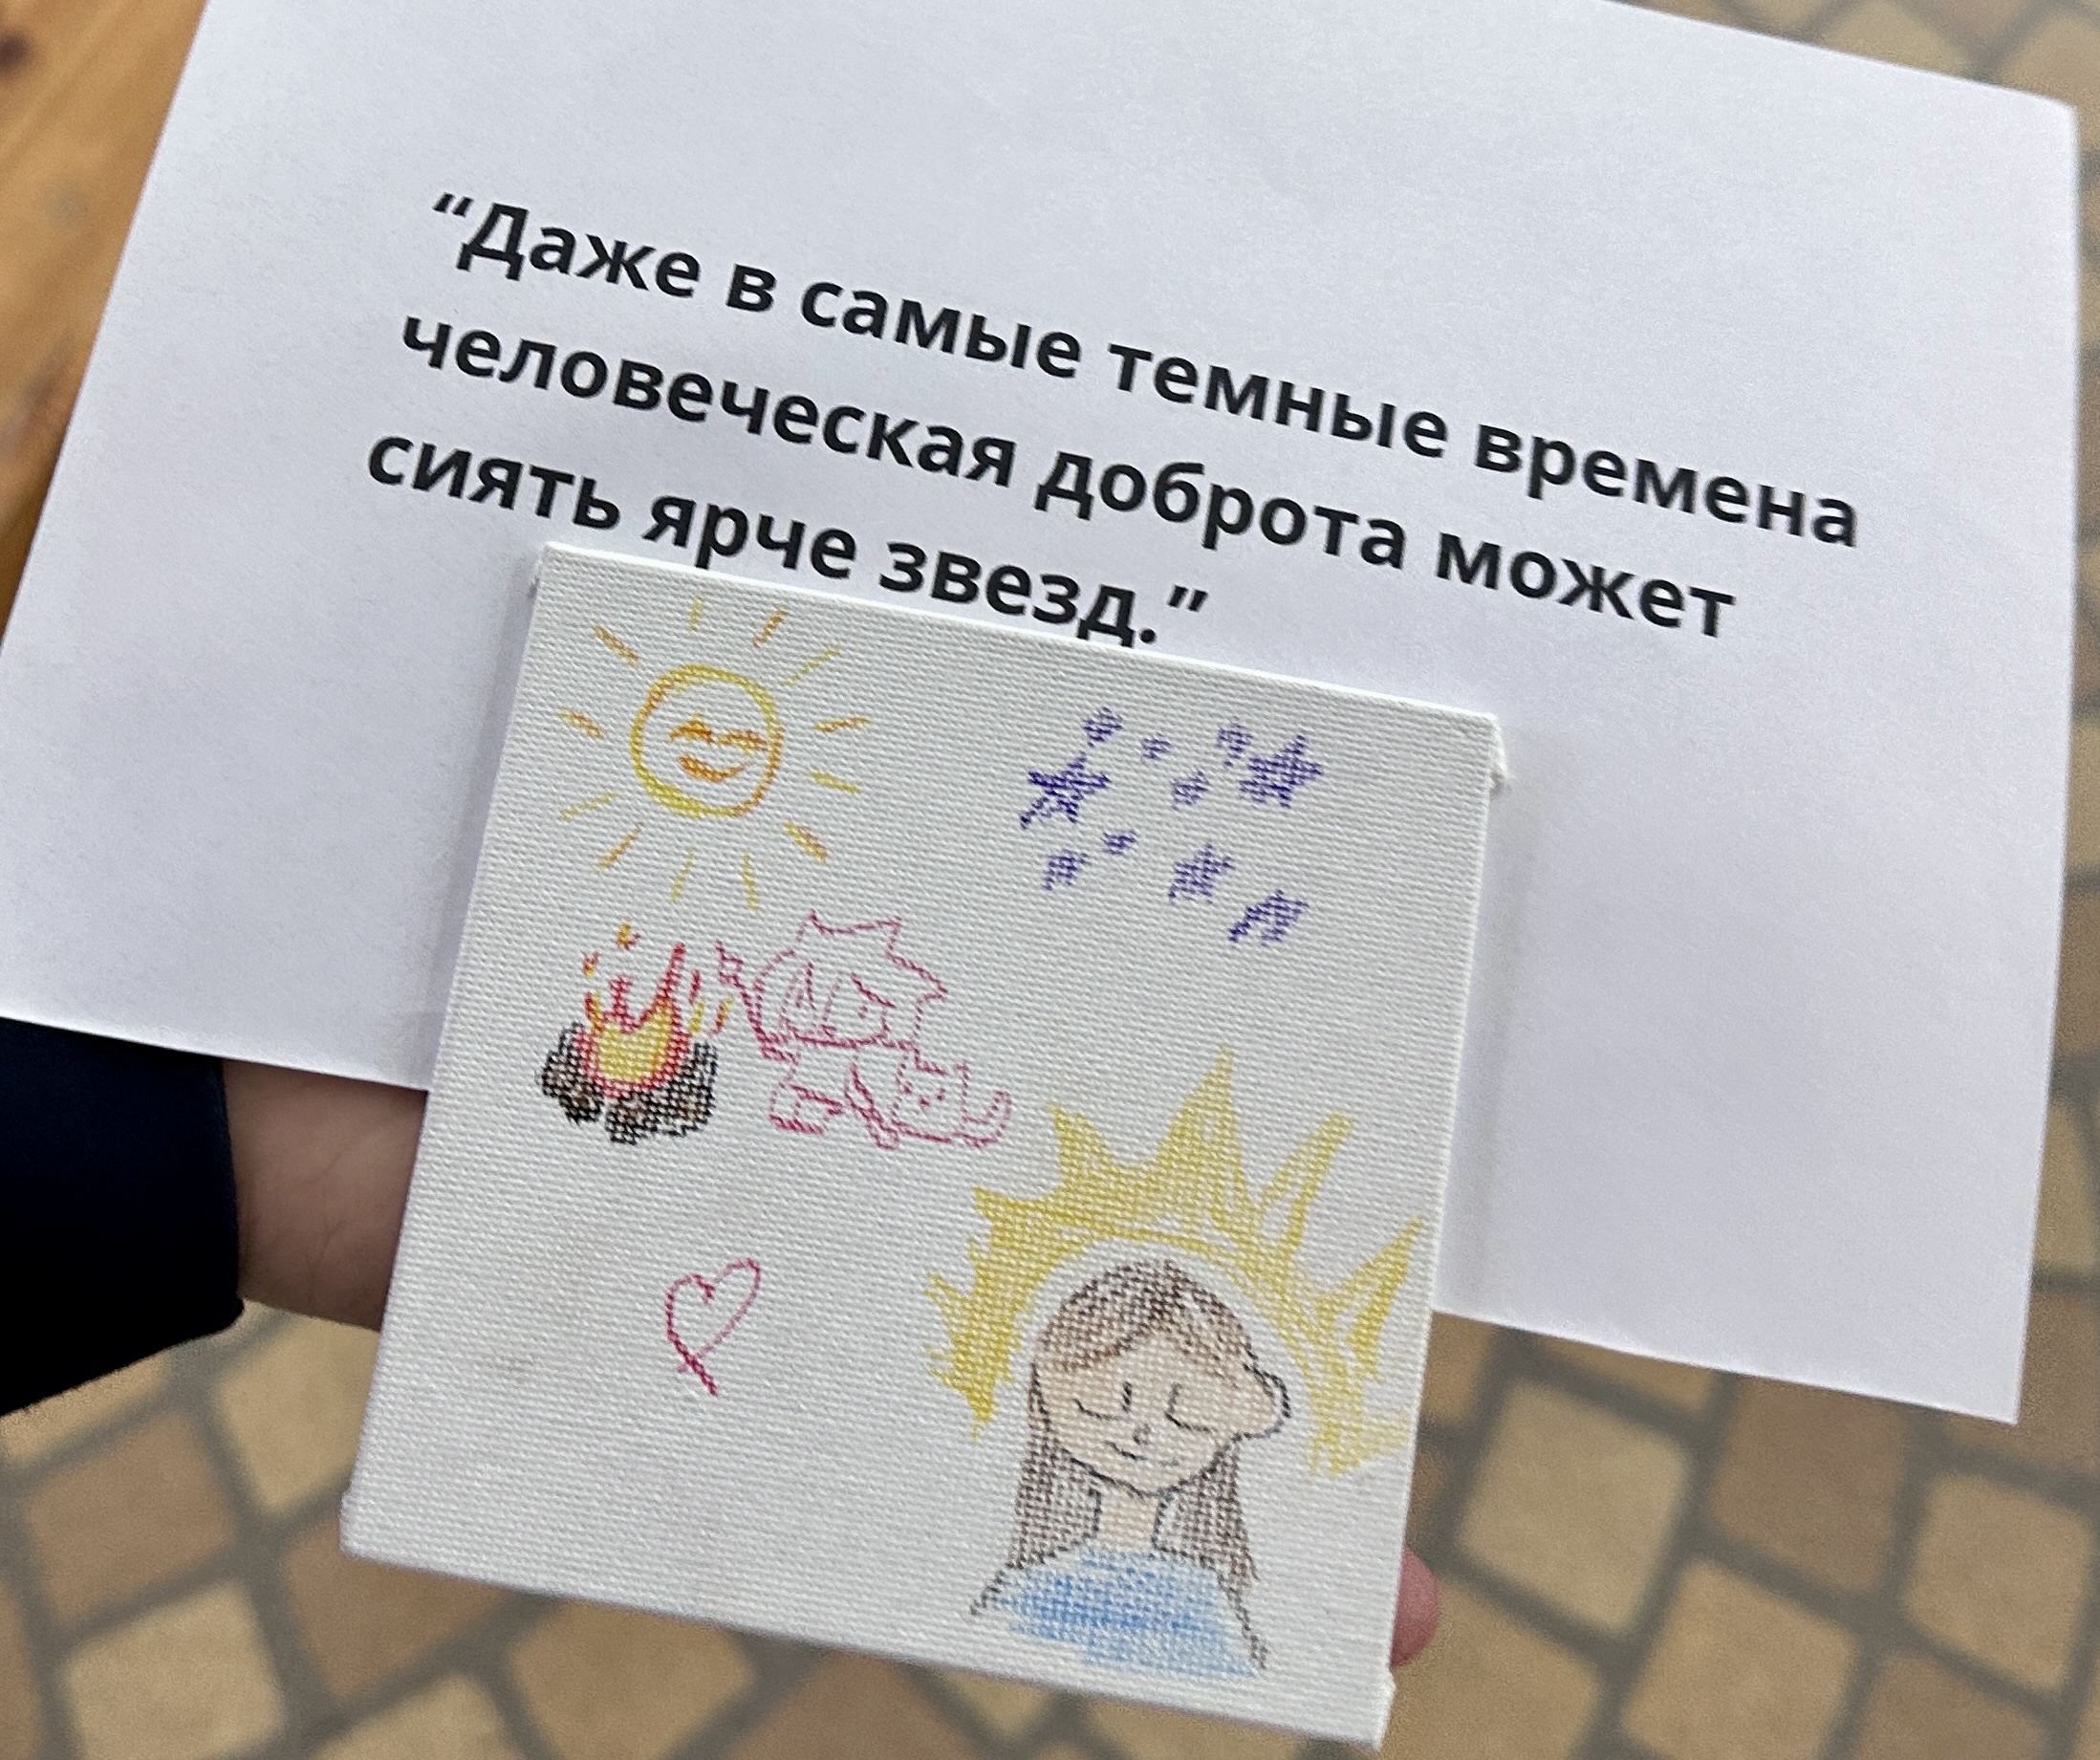 “Даже в самые темные времена
человеческая доброта может
сиять ярче звезд.”